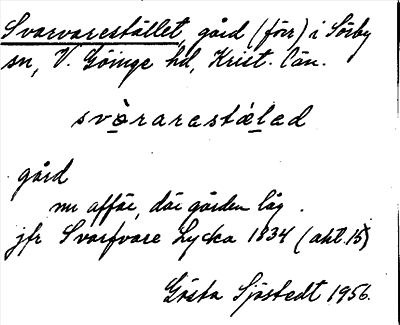 Svarvarestället, gård (förr) i Sörby
sn, V. Göinge hd, Krist. län.
svàrarestǽlǝd
gård
nu affär, där gården låg.
jfr Svarfvare Lycka 1834 (akt. 15)
Gösta Sjöstedt 1956.